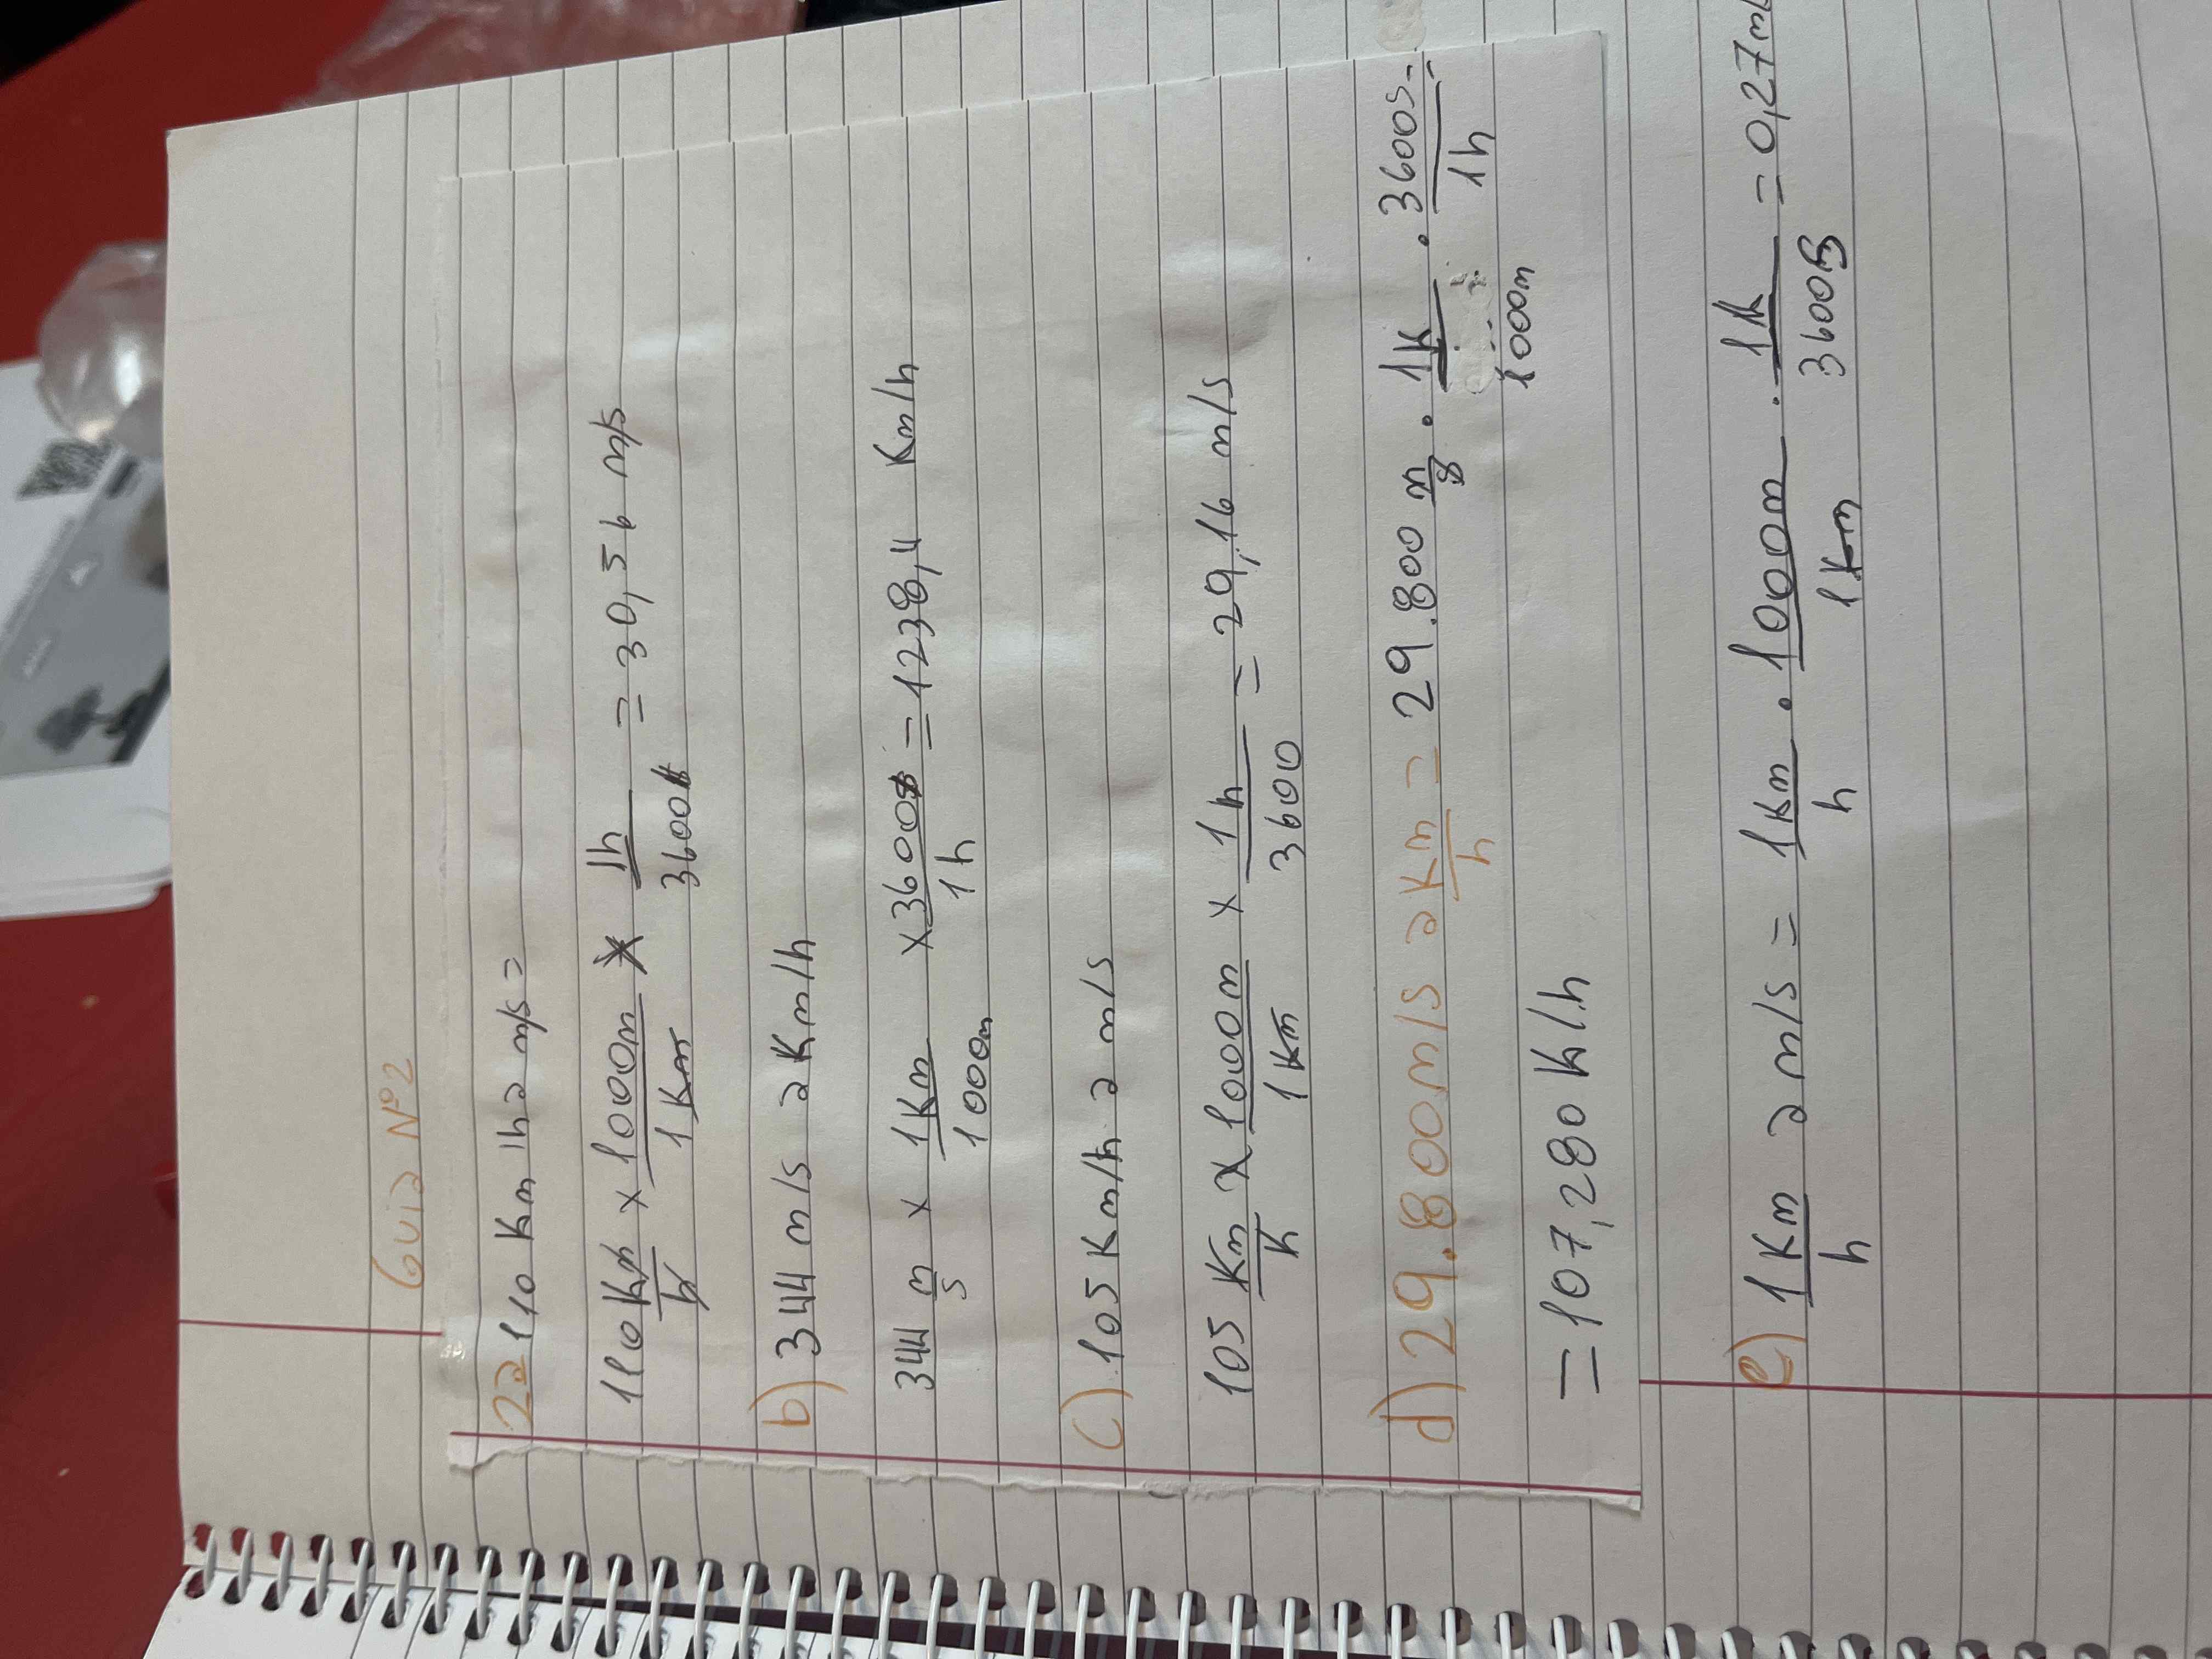 Guia N°2
2a 110 Km 1h a m/s =
110 Km/h x 1000m/1Km x 1h/3600s = 30,56 m/s
b) 344 m/s a Km/h
344 m/s x 1Km/1000m x 3600s/1h = 1238,4 Km/h
c) 105 Km/h a m/s
105 Km/h x 1000m/1Km x 1h/3600 = 29,16 m/s
d) 29.800m/s a Km/h = 29.800 m/s . 1K/1000m . 3600s/1h
= 107,280 K/h
e) 1Km/h a m/s = 1Km/h . 1000m/1Km . 1h/3600s = 0,27m/